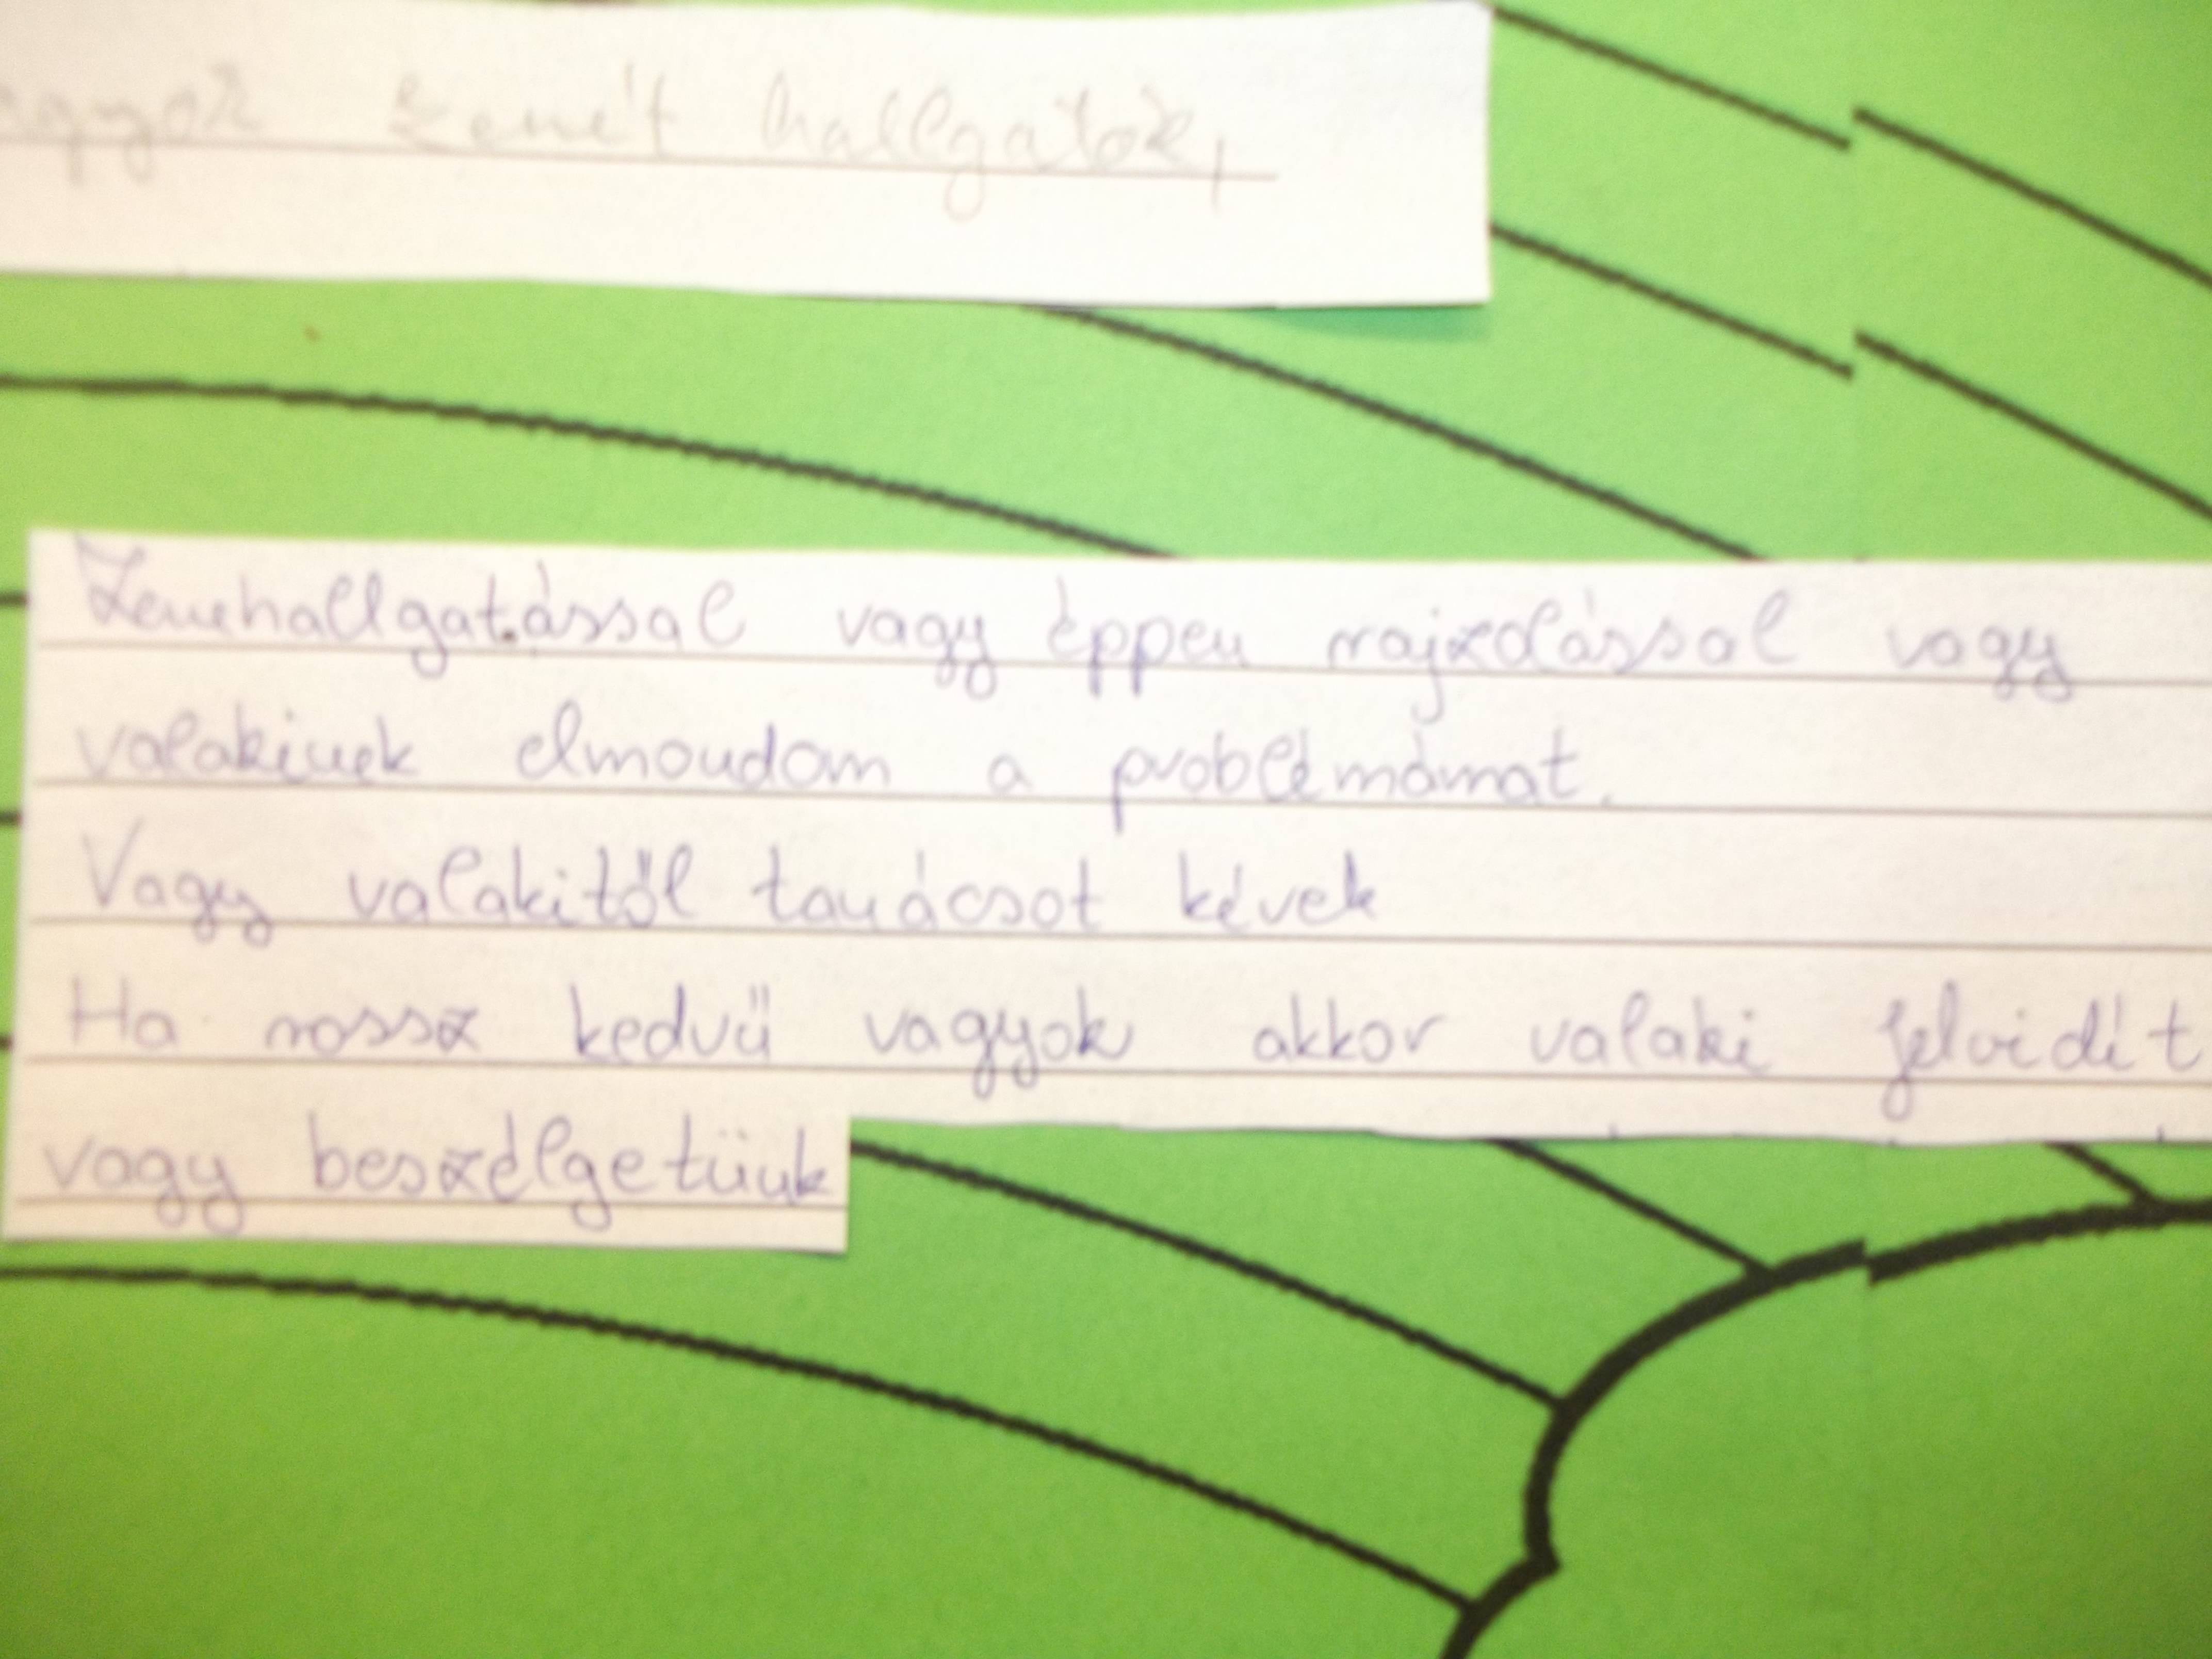 zenét hallgatok,
Zenehallgatással vagy éppen rajzolással vagy
valakinek elmondom a problémámat.
Vagy valakitől tanácsot kérek
Ha rossz kedvű vagyok akkor valaki felvidít
vagy beszélgetünk